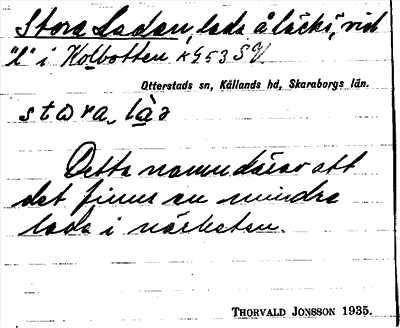 Stora Ladan, lada å läckö, vid
"l" i Kolbotten RG53SV
Otterstads sn, Kållands hd, Skaraborgs län.
stora, la
Detta namn därav att
det finns en mindre
lada i närheten.
THORVALD JONSSON 1935.